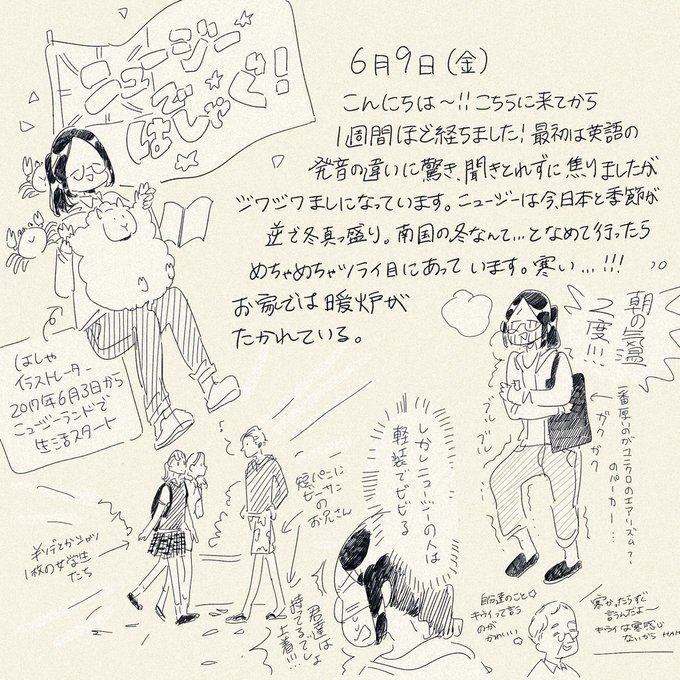 ニュージー
で
はしゃぐ!
6月9日(金)
こんにちは〜!!こちらに来てから
1週間ほど経ちました!最初は英語の
発音の違いに驚き、聞きとれずに焦りましたが
ジワジワましになっています。ニュージーは今、日本と季節が
逆で冬真っ盛り。南国の冬なんて…となめて行ったら
めちゃめちゃツライ目にあっています。寒い…!!!
お家では暖炉が
たかれている。
はしゃ
イラストレーター
2017年6月3日から
ニュージーランドで
生活スタート
朝の気温
2度!!!
一番厚いのがユニクロのエアリズム?
のパーカー…
ガクガク
ブルブル
しかしニュージーの人は
軽装でビビる
短パンに
ビーサン
のお兄さん
半ソデとかシャツ
1枚の女学生
たち
君達は
持ってるでしょ
上着!!!
自分達のこと
キウイって言う
のが
かわいい
寒かったらすぐ
言うんだよ〜
キウイは寒感じ
ないから HAHA